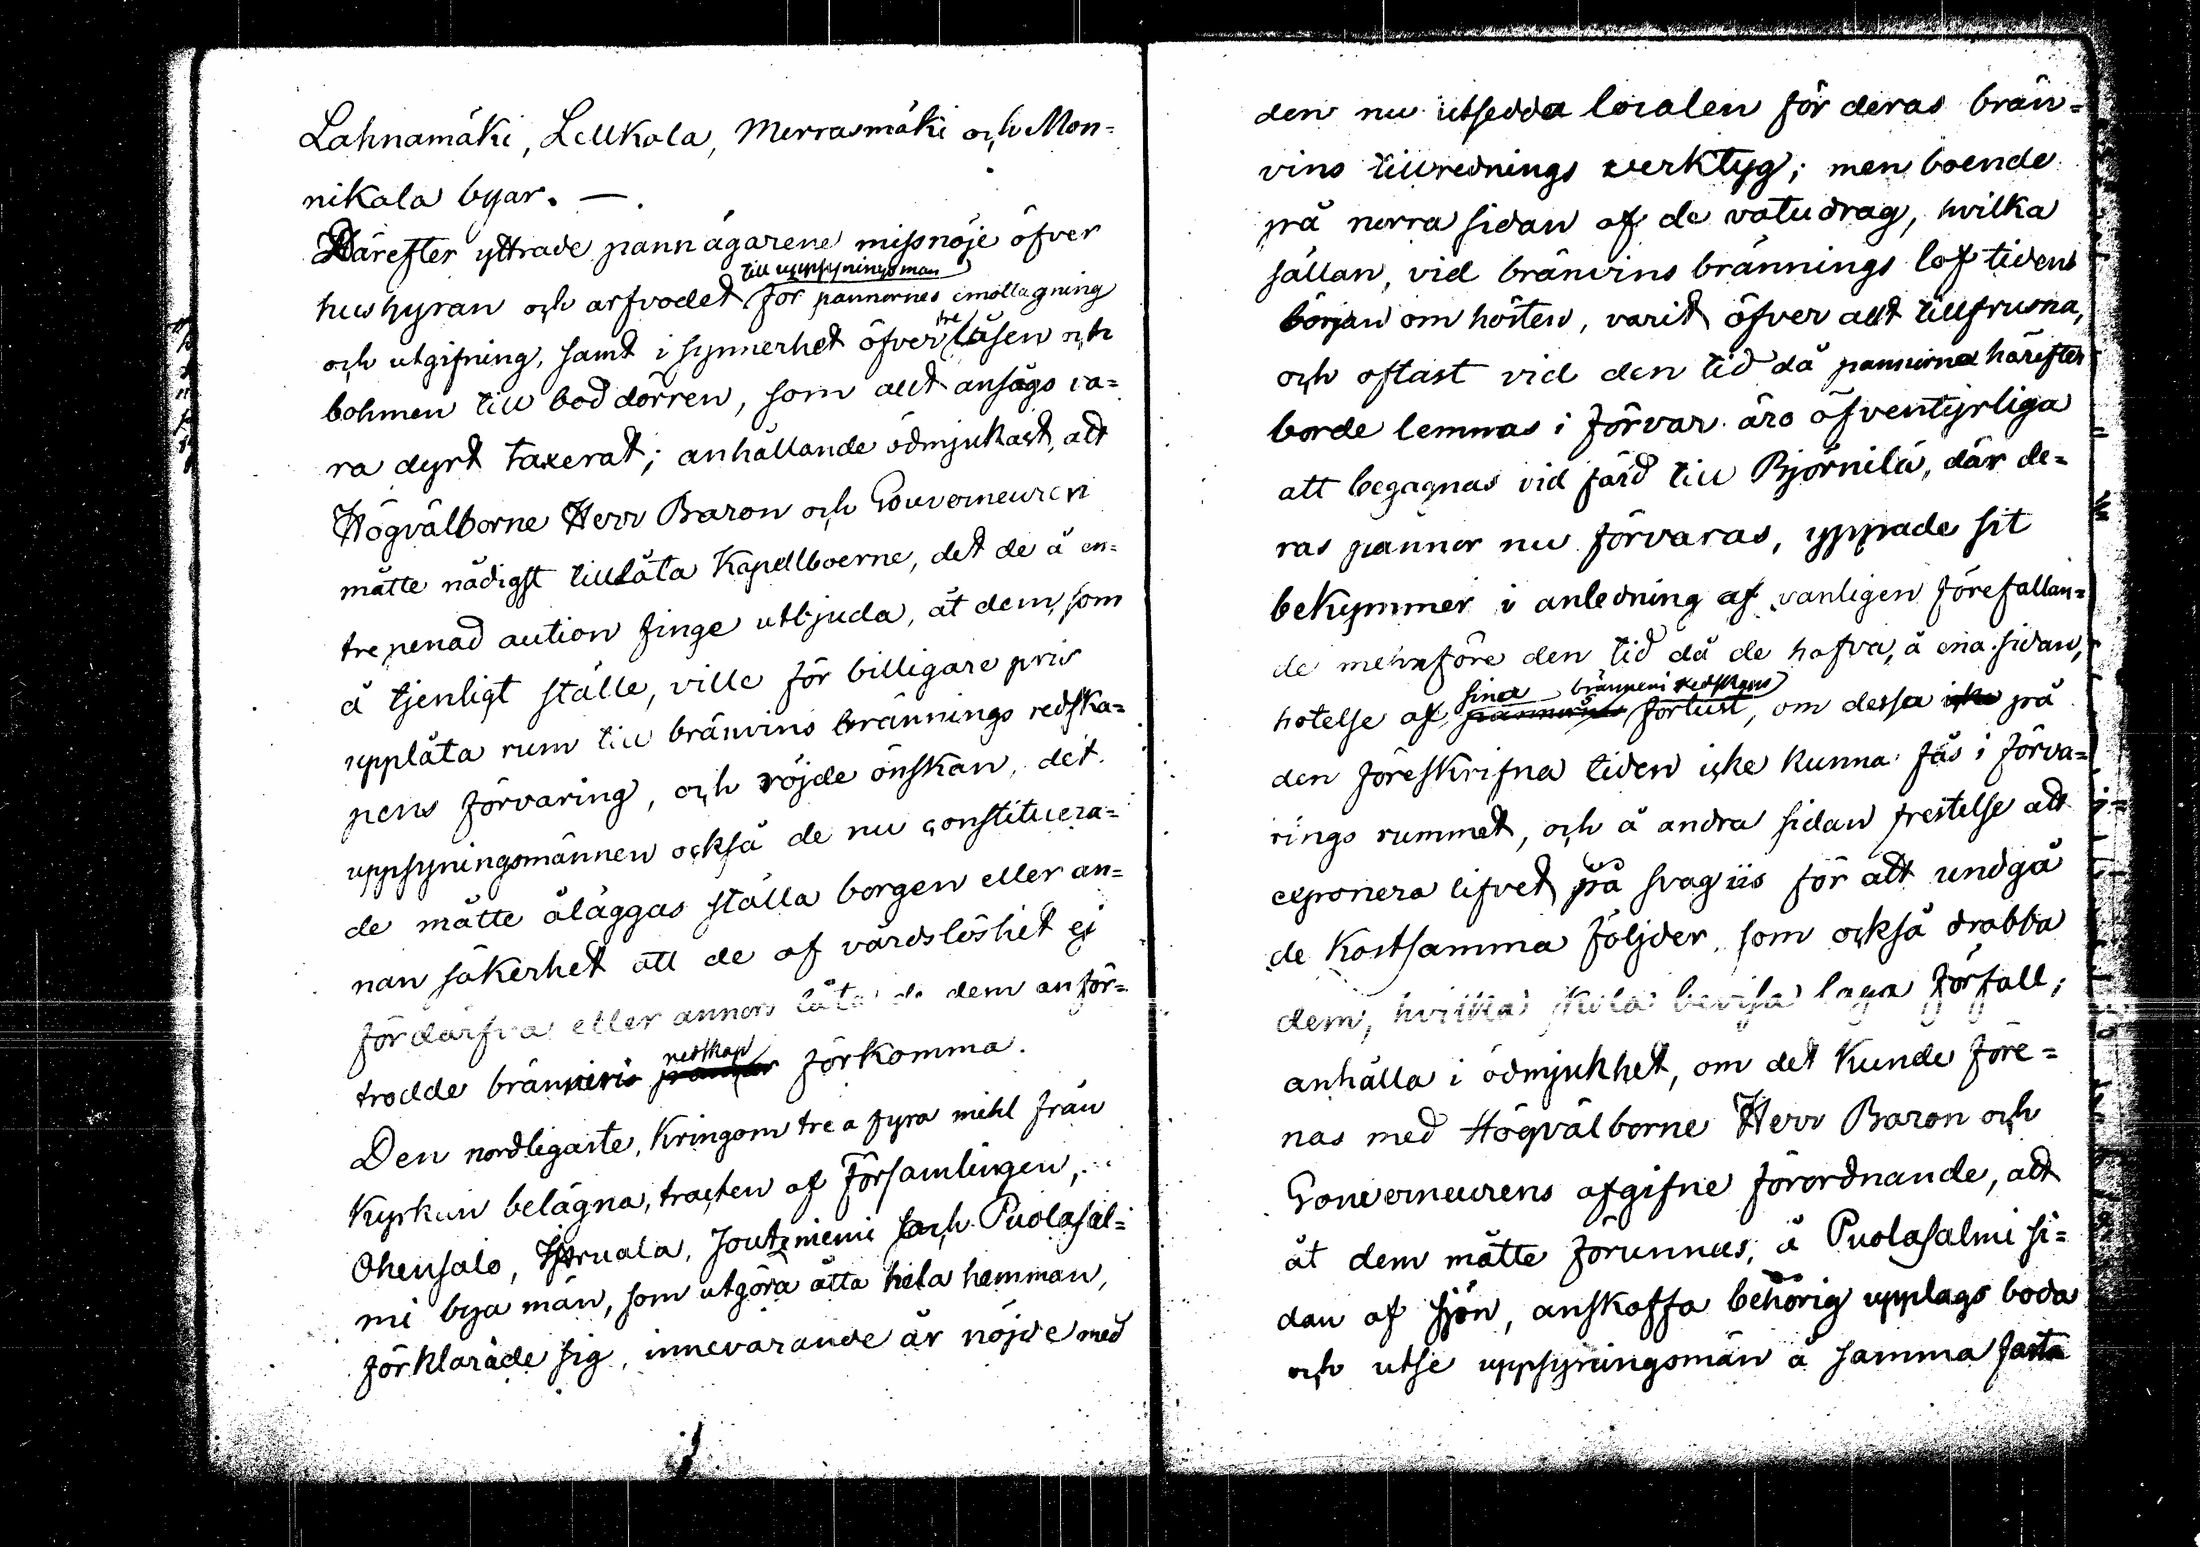 Lahnamäki, Lellkala, Merrasmäki och Mon=
nikala byar. —.
Därefter yttrade pannägarene missnöje öfver
till uppsyningsman
hushyran och arfvodet för pannornes emottagning
och utgifning, samt i synnerhet öfver låsen och
bohmen till boddörren, som allt ansågs va=
ra dyrt taxerat; anhållande ödmjukast, att
Högvälborne Herr Baron och Gouverneuren
måtte nådigst tillåta Kapellboerne, det de å en=
trepenad aution finge utbjuda, åt dem, som
å tjenligt ställe, ville för billigare pris
upplåta rum till bränvins brännings redska=
pens förvaring, och röjde önskan, det
uppsyningsmännen också de nu constituera=
de måtte åläggas ställa borgen eller an=
nan säkerhet att de af vårdslöshet ej
fördärfva eller annors låta de dem anför=
redskap
trodde bränneri pannor förkomma.
Den nordligaste, kringom tre a fyra mihl från
Kyrkan belägna, tracten af Församlingen,
Ohensalo, Joutzniemi och Puolasal=
mi bya män, som utgöra åtta hela hemman,
förklarade sig, innevarande år nöjde med
den nu utsedda localen för deras brän=
vins tillrednings verktyg; men boende
på norra sidan af de vatudrag, hvilka
sällan, vid bränvins brännings lof tidens
början om hösten, varit öfver allt tillfrusna,
och oftast vid den tid då pannorna härefter
borde lemnas i förvar äro öfventyrliga
att begagnas vid färd till Björnilä, där de=
ras pannor nu förvaras, yppade sit
bekymmer i anledning af vanligen förefallan=
de mehnföre den tid då de hafva, å ena sidan,
sina bränneri redskaps
hotelse af pannornes förlust, om dessa icke på
den föreskrifna tiden icke kunna fås i förva=
rings rummet, och å andra sidan frestelse att
exponera lifvet på svag iis för att undgå
de kostsamma följder, som också drabba
dem, hvilka skola bevisa laga förfall;
anhålla i ödmjukhet, om det kunde före=
nas med Högvälborne Herr Baron och
Gouverneurens afgifne förordnande, att
åt dem måtte förunnas, å Puolasalmi si=
dan af sjön, anskaffa behörig upplags boda
och utse uppsyningsman å samma fasta